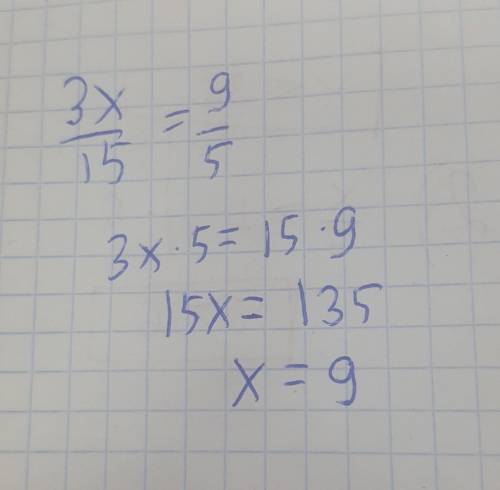 3x/15 = 9/5
3x · 5 = 15 · 9
15x = 135
x = 9